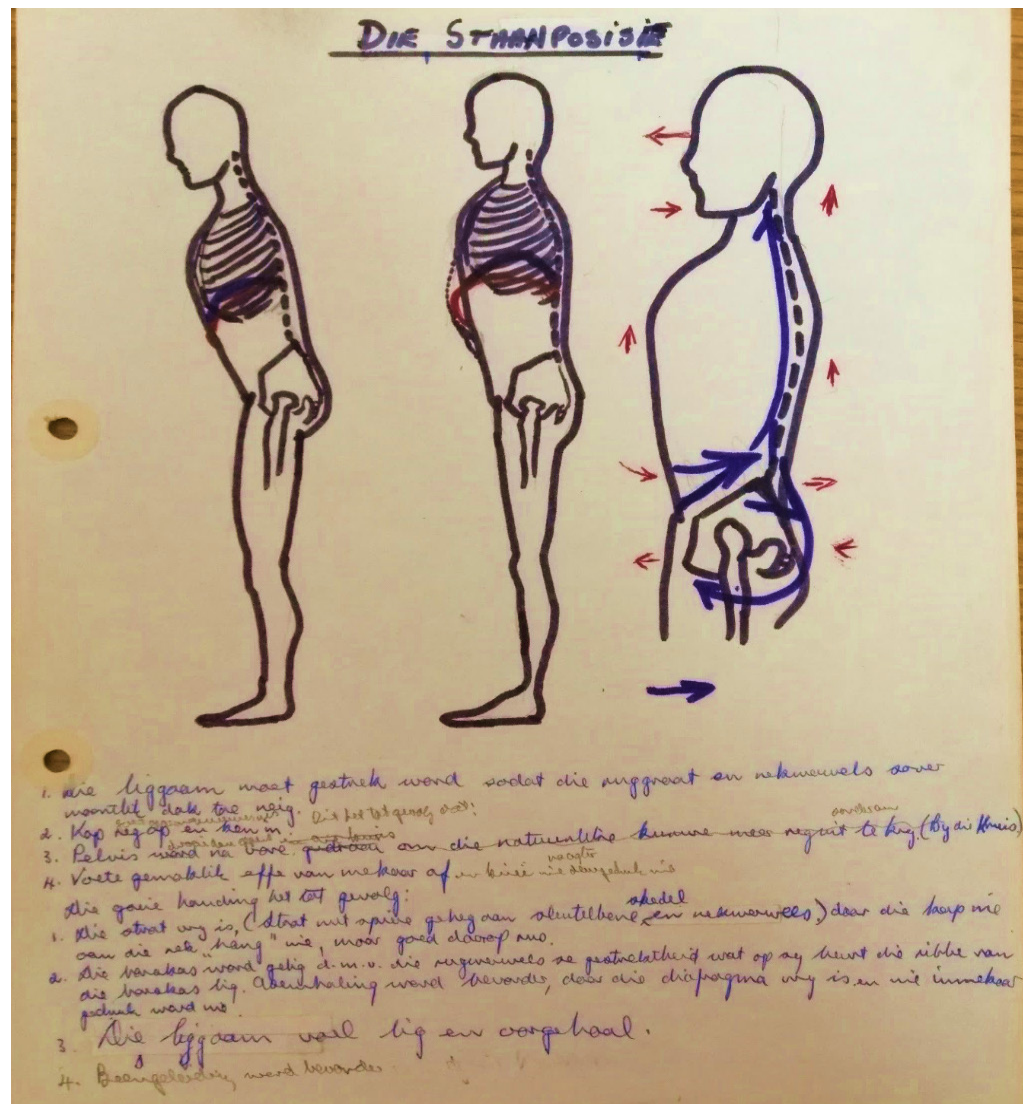 DIE STAANPOSISIE
1. Die liggaam moet gestrek word sodat die ruggraat en nekwerwels sover
moontlik dak toe neig.
Dit het tot gevolg dat:
2. Kop regop en ken in.
sonder om
3. Pelvis word na vore gedraai om die natuurlike kurwe meer reguit te kry (By die Kruis)
4. Voete gemaklik effe van mekaar af en knieë nie deurgedruk nie
Die goeie houding het tot gevolg:
skedel
1. Die strot vry is, (Strot met spiere geheg aan sleutelbene, en nekwerwels) daar die kop nie
aan die nek "hang" nie, maar goed daarop rus.
2. Die borskas word gelig d.m.v. die rugwerwels se gestrektheid wat op sy beurt die ribbe van
die borskas lig. Asemhaling word bevorder, daar die diafragma vry is en nie inmekaar
gedruk word nie.
3 Die liggaam voel lig en
4. Beengeleiding word bevorder.